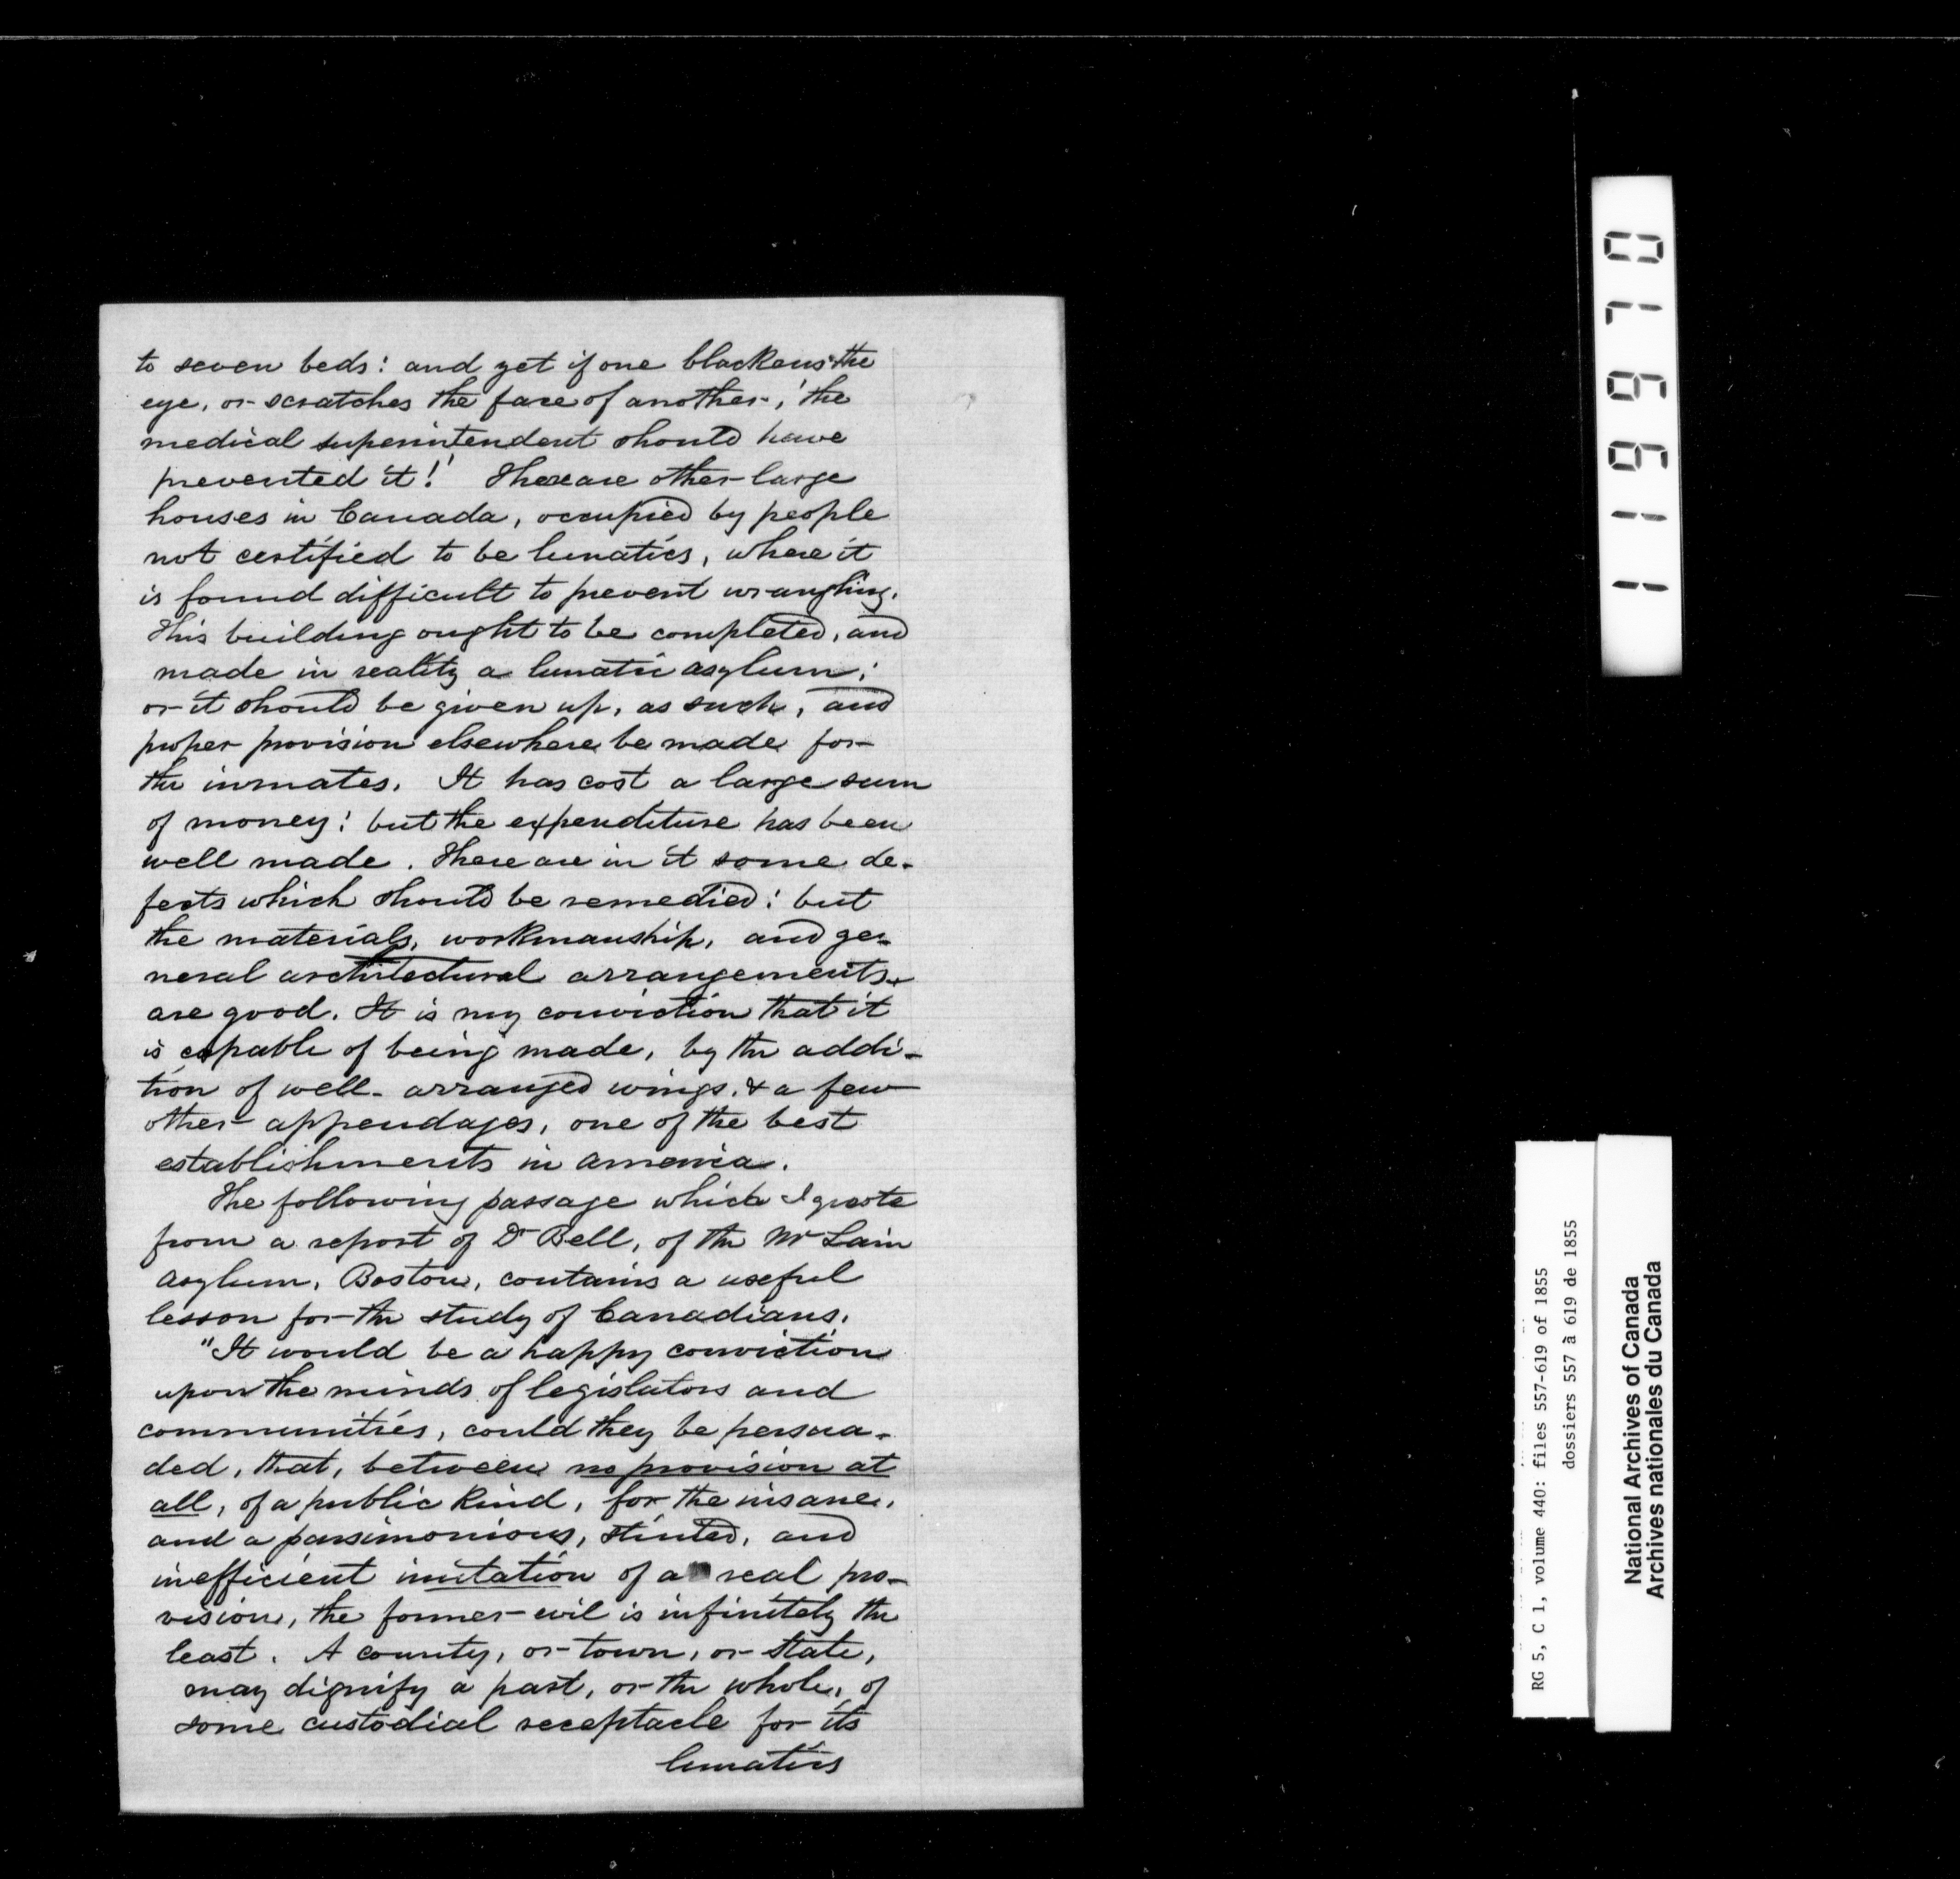 to seven beds: and yet if one blackens the
eye, or scratches the face of another, 'the
medical superintendent should have
prevented it!' There are other large
houses in Canada, occupied by people
not certified to be lunatics, where it
is found difficult to prevent wrangling.
This building ought to be completed, and
made in reality a lunatic asylum;
or it should be given up, as such, and
proper provision elsewhere be made for
the inmates. It has cost a large sum
of money: but the expenditure has been
well made. There are in it some de-
fects which should be remedied: but
the materials, workmanship, and ge-
neral architectural arrangements
are good. It is my conviction that it
is capable of being made, by the addi-
tion of well-arranged wings, & a few
other appendages, one of the best
establishments in America.
The following passage which I quote
from a report of Dr Bell, of the Mc Lain
Asylum, Boston, contains a useful
lesson for the study of Canadians.
"It would be a happy conviction
upon the minds of legislators and
communities, could they be persua-
ded, that, between no provision at
all, of a public kind, for the insane,
and a parsimonious, stinted, and
inefficient imitation of a real pro-
vision, the former evil is infinitely the
least. A county, or town, or State,
may dignify a part, or the whole, of
some custodial receptacle for its
lunatics
1196710
RG 5, C 1, volume 440: files 557-619 of 1855
dossiers 557 à 619 de 1855
National Archives of Canada
Archives nationales du Canada